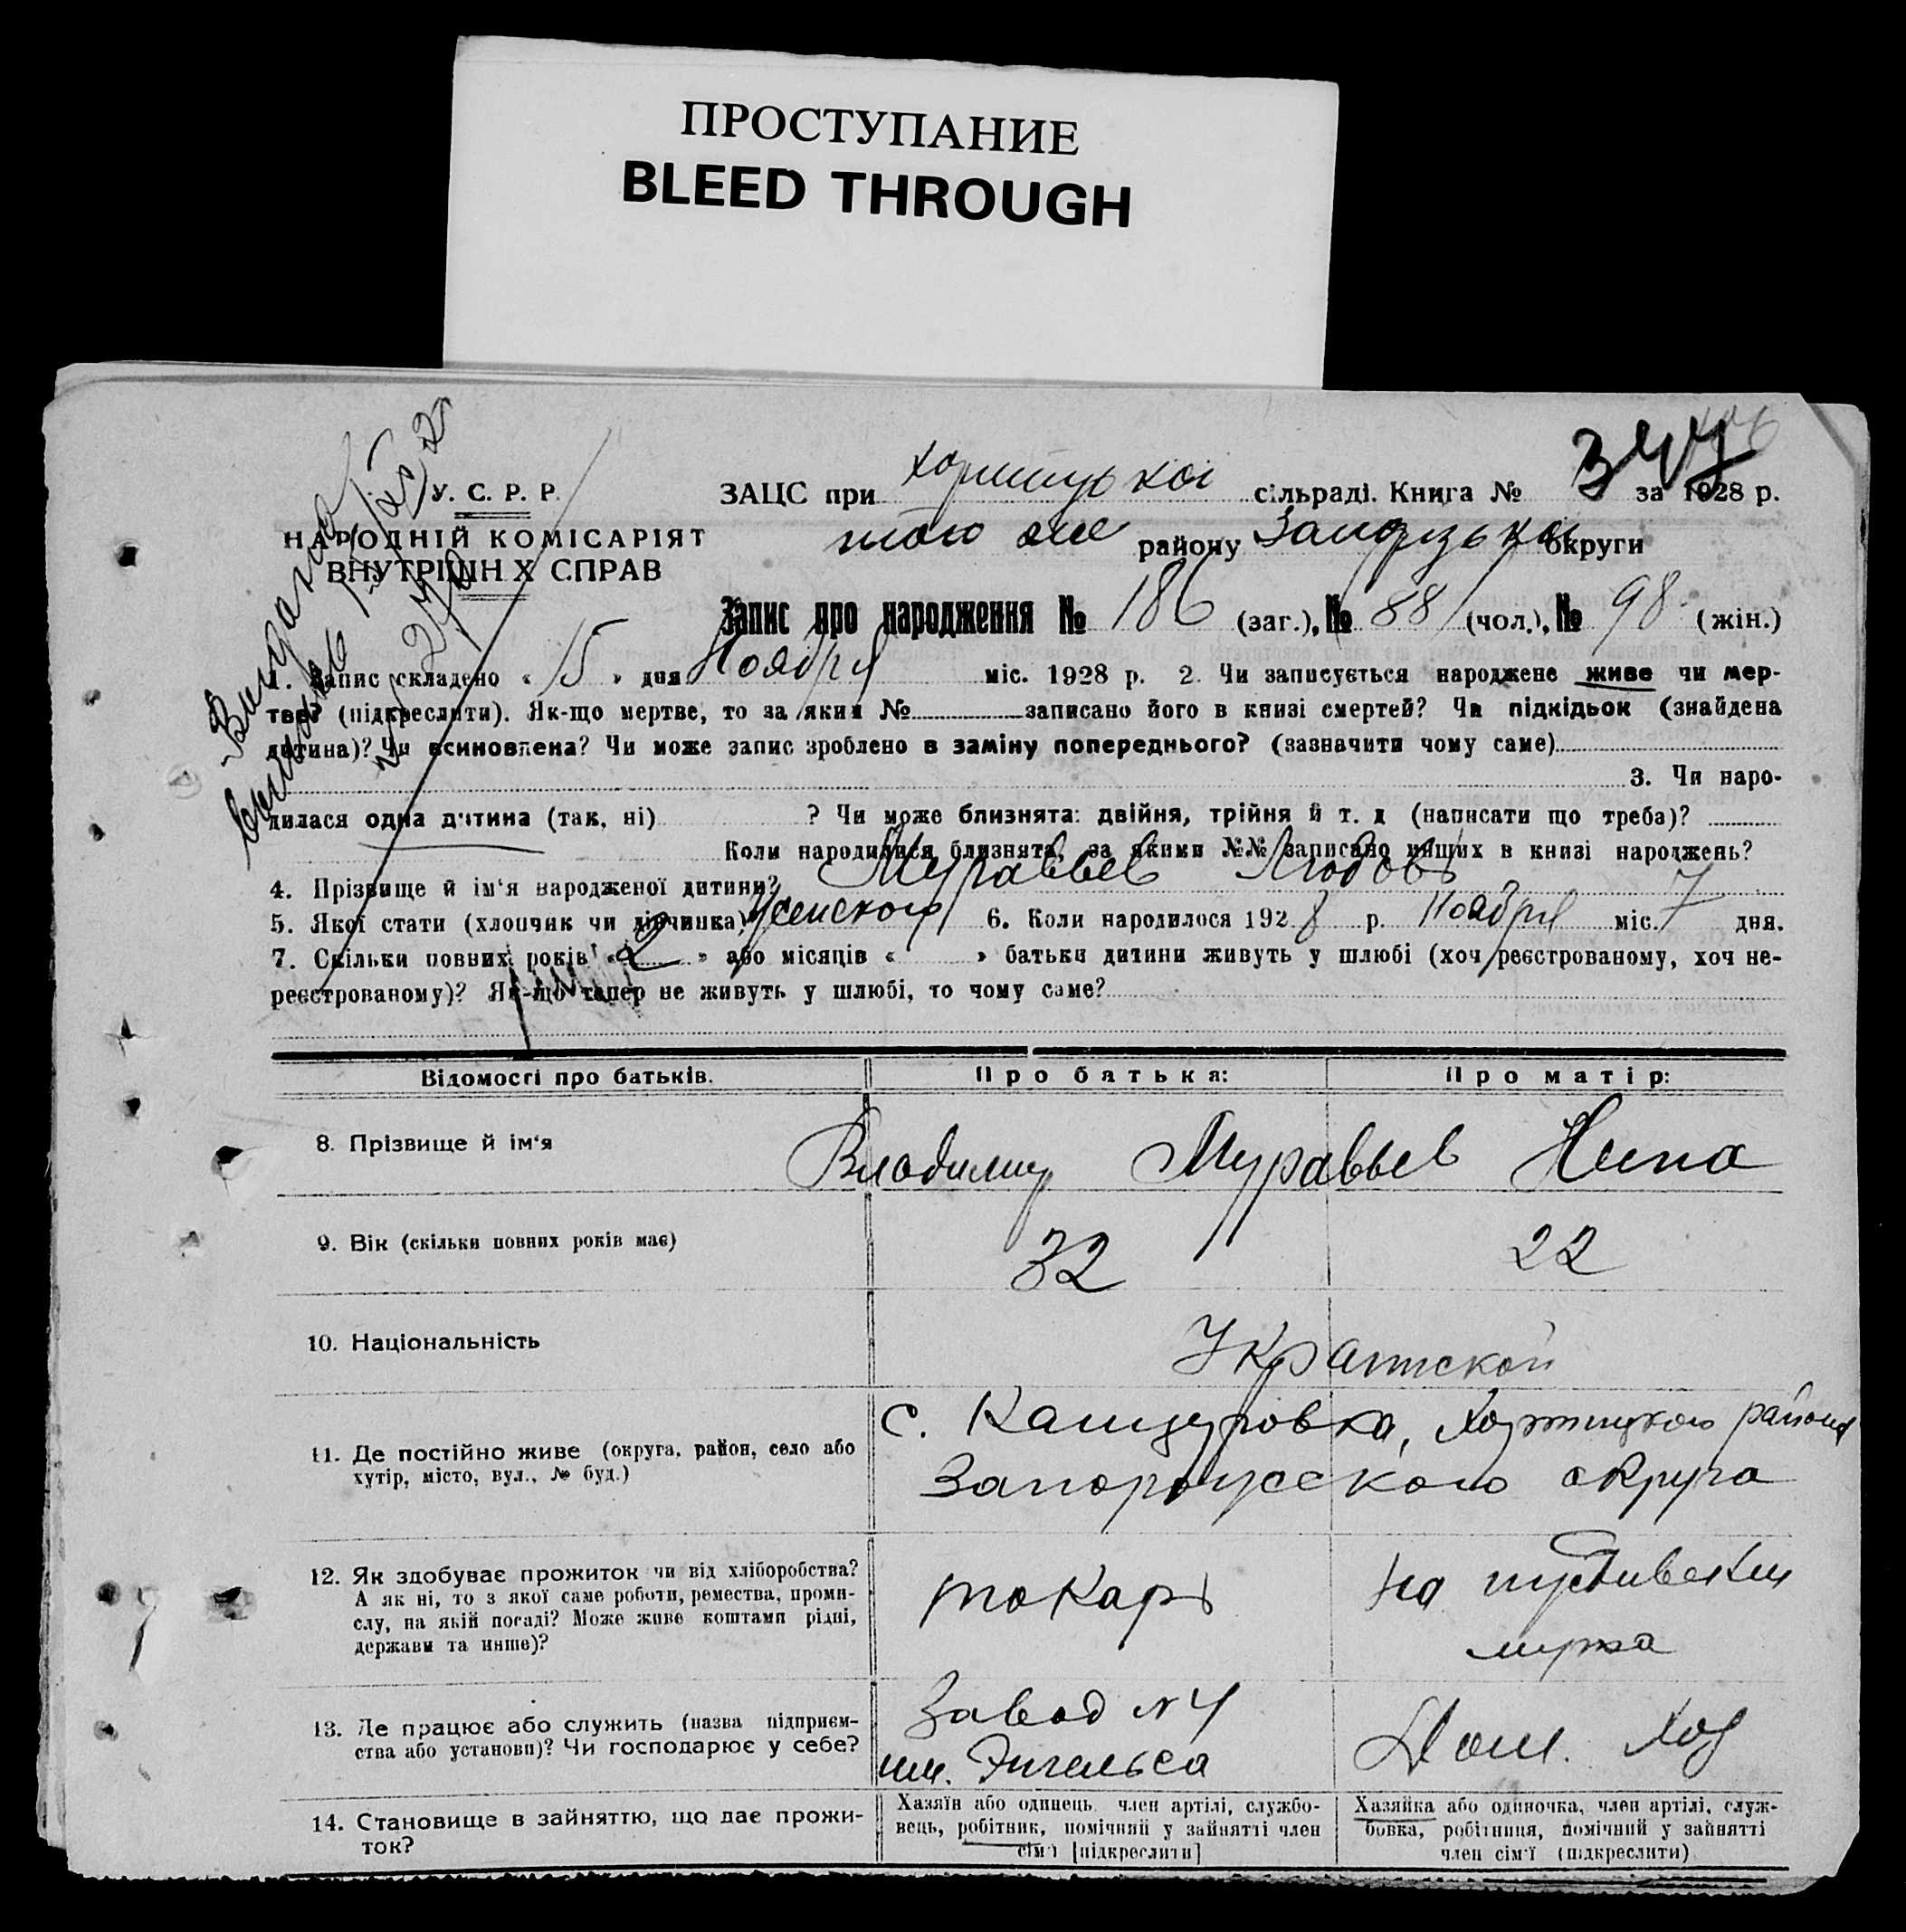 ПРОСТУПАНИЕ
BLEED THROUGH
347
У. С. Р. Р.
НАРОДНІЙ КОМІСАРІЯТ
ВНУТРІШН Х СПРАВ
Видано
ЗАЦС при Хортицької сільраді. Книга № за 1928 р.
того же району Запорізької округи
Запис про народження № 186 (заг.), № 88 (чол.), № 98 (жін.)
1. Запис складено « 15 » дня Ноября міс. 1928 р. 2. Чи записується народжене живе чи мер-
тве? (підкреслити). Як-що мертве, то за яким № записано його в книзі смертей? Чи підкідьок (знайдена
дитина)? Чи всиновлена? Чи може запис зроблено в заміну попереднього? (зазначити чому саме)
3. Чи наро-
дилася одна дитина (так, ні) ? Чи може близнята: двійня, трійня й т. д (написати що треба)?
Коли народилися близнята, за якими №№ записано инших в книзі народжень?
4. Прізвище й ім‘я народженої дитини? Муравьев Любовь
5. Якої стати (хлопчик чи дівчинка) Женского 6. Коли народилося 1928 р. Ноября міс. 7 дня.
7. Скільки повних років « 2 » або місяців « » батьки дитини живуть у шлюбі (хоч реєстрованому, хоч не-
реєстрованому)? Як-що тепер не живуть у шлюбі, то чому саме?
Відомості про батьків. Про батька: Про матір:
8. Прізвище й ім‘я Владимир Муравьев Нина
9. Вік (скільки повних років має) 32 22
10. Національність
11. Де постійно живе (округа, район, село або
хутір, місто, вул., № буд.)
с. Канцуровка, Хортицкого района
Запорожсского округа
12. Як здобуває прожиток чи від хліборобства?
А як ні, то з якої саме роботи, ремества, проми-
слу, на якій посаді? Може живе коштами рідні,
держави та инше)?
токарь
на
мужа
13. Де працює або служить (назва підприєм-
ства або установи)? Чи господарює у себе?
Завод №4
им. Энгельса
Дом. Хоз
14. Становище в зайняттю, що дає прожи-
ток?
Хазяїн або одинець член артілі, службо-
вець, робітник, помічний у зайнятті член
сім‘ї [підкреслити]
Хазяйка або одиночка, член артілі, служ-
бовка, робітниця, помічний у зайнятті
член сім‘ї (підкреслити)